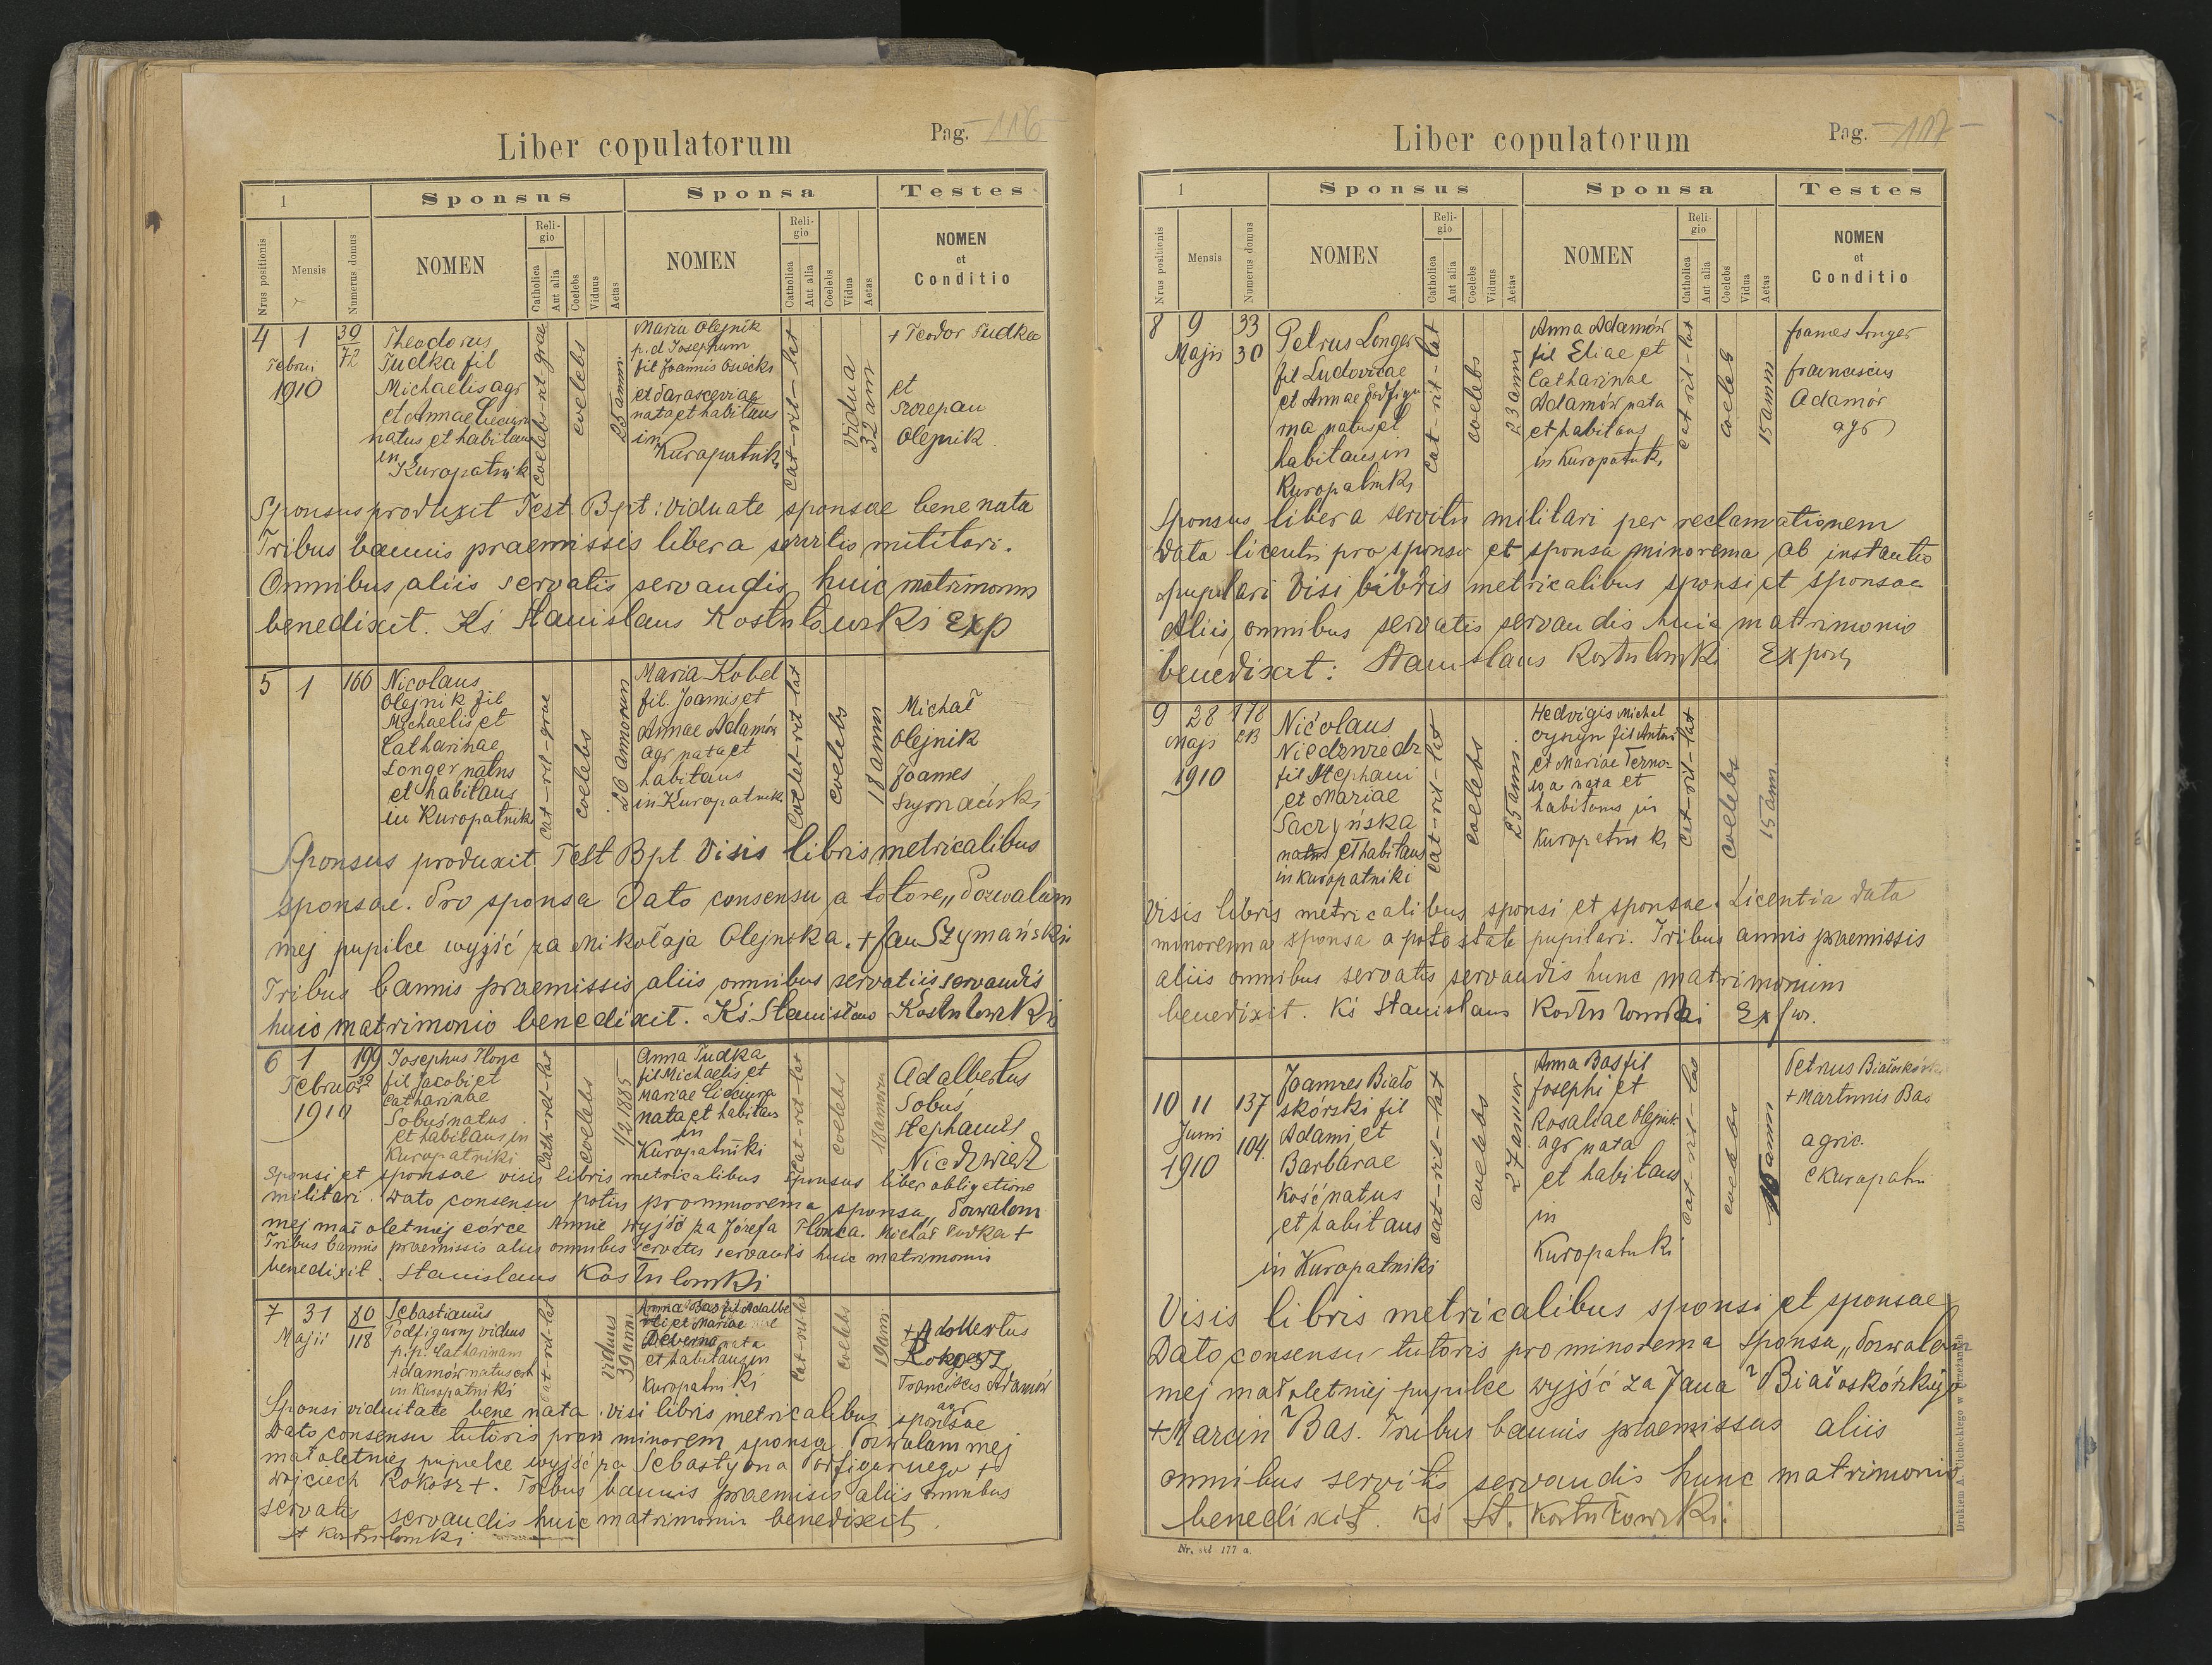 Liber copulatorum
Pag. -116-
1
Sponsus
Sponsa
Testes
Nrus positionis
Mensis
Numerus domus
NOMEN
Religio
Catholica
Aut alia
Coelebs
Viduus
Aetas
NOMEN
Religio
Catholica
Aut alia
Coelebs
Vidua
Aetas
NOMEN
et
Conditio
4 1 1910
39
72
Theodorus
Tudka fil
Michaelis agr
et Annae
natus et habitans
in
Kuropatnik
coelebs rit-grae
coelebs
25 annor
Maria Olejnik
p.d Josephum
fil Joannis Osiecki
et Parasceviae
nata et habitans
in
Kuropatnik
cat-rit-lat
vidua
32 ann
+ Teodor Tudka
et
Szczepan
Olejnik
Sponsus produxit Test. Bpt: viduate sponsae bene nata
Tribus bannis praemissis libera militari.
Omnibus aliis servatis servandis huic matrimonio
benedixit. Ks. Stanislaus Kostulowski Exp
5 1 166
Nicolaus
Olejnik fil
Michaelis et
Catharinae
Longer natus
et habitans
in Kuropatnik
cat-rit-grae
coelebs
26 annorum
Maria Kobel
fil. Joannis et
Annae Adamów
agr nata et
habitans
in Kuropatnik
coelebs
18 ann
Michał
Olejnik
Joames
Szymański
Sponsus produxit Test Bpt. Visis libris metricalibus
sponsae. Pro sponsa Dato consensu a totore „Pozwalam
mej pupilce wyjść za Mikołaja Olejnika. + Jan Szymański
Tribus bannis praemissis aliis omnibus servatiis servandis
huic matrimonio benedixit. Ks. Kostulowski
6 1 199
Februar 39
1910
Josephus
fil Jacobi et
Catharinae
Sobuś natus
et habitans in
Kuropatniki
Cath-rit-lat
coelebs
1/2 1885
Anna Tudka
fil Michaelis et
Mariae
nata et habitans
in
Kuropatniki
cat-rit-lat
coelebs
18 annoru
Adalbertus
Sobuś
Stephanus
Niedzwiedz
Sponsi et sponsae visis libris metricalibus Sponsus liber obligatione
militari. Dato consensu sponsa „Pozwalam
mej małoletniej córce Annie wyjść za Józefa Michał Tudka +
Tribus bannis praemissis aliis omnibus servatis servandis huic matrimonio
benedixit. Stanislaus Kostulowski
7 31 80
Majii 118
Sebastianus
Podfigurny viduus
p.p. Catharinam
Adamów natus est
in Kuropatniki
cat-rit-lat
viduus
39 anni
Anna Bas fil Adalbe
rti et Mariae
nata
et habitans in
Kuropatniki
cat-rit-lat
coelebs
19 ann
+ Adalbertus
Rokosz
Franciscus Adamów
agr
Sponsi viduitate bene nata visi libris metricalibus sponsae
Dato consensu tutoris pro minorem sponsa. Pozwalam mej
małoletniej pupilce wyjść za Sebastyana Podfigurnego +
Wojciech Rokosz +. Tribus bannis praemisis aliis omnibus
servatis servandis huic matrimonio benedixit
St Kostulowski
Liber copulatorum
Pag. -117-
1
Sponsus
Sponsa
Testes
Nrus positionis
Mensis
Numerus domus
NOMEN
Religio
Catholica
Aut alia
Coelebs
Viduus
Aetas
NOMEN
Religio
Catholica
Aut alia
Coelebs
Vidua
Aetas
NOMEN
et
Conditio
8 9 33
Majii 30
Petrus Longer
fil Ludovicae
et Annae Podfigu
rna natus et
habitans in
Kuropatniki
cat-rit-lat
coelebs
23 ann
Anna Adamów
fil Eliae et
Catharinae
Adamów nata
et habitans
in Kuropatnk
cat rit-lat
coeleb
15 annor
Joames Longer
franciscus
Adamów
agr
Sponsus libera servitu militari per reclamationem
data licentii pro sponso et sponsa minorema ab instantio
pupilari Visi libris metricalibus sponsi et sponsae
Aliis omnibus servatis servandis huic matrimonio
benedixit: Stanislaus Kostulowski Expon
9 28 178
Majs 213
1910
Nicolaus
Niedzwiedz
fil Stephani
et Mariae
Saczyńska
natus et habitans
in Kuropatniki
cat-rit-lat
coelebs
25 ann.
Hedvigis Michal
cyszyn fil Antoni
et Mariae
nata et
habitans in
Kuropatniki
cat-rit-lat
coelebs
15 ann
Visis libris metricalibus sponsi et sponsae. Licentia data
minorenna sponsa a potestate pupilari. Tribus annis praemissis
aliis omnibus servatis servandis hunc matrimonium
benedixit. Ks Stanislaus Kostulowski
10 11 137
Junii 104.
1910
Joannes Biało
skórski fil
Adami et
Barbarae
Kość natus
et habitans
in Kuropatniki
cat-rit-lat
coelebs
27 annor
Anna Bas fil
Josephi et
Rosaliae Olejnik
agr nata
et habitans
in
Kuropatnki
cat-rit-lat
coelebs
16 ann
Petrus Białoskórski
+ Martinis Bas
agric.
Visis libris metricalibus sponsi et sponsae
Dato consensu tutoris pro minorema sponsa „Pozwalam
mej małoletniej pupilce wyjść za Jana Białoskórskiego
+ Marcin Bas. Tribus bannis praemissus aliis
omnibus servitis servandis hunc matrimonio
benedixit. Ks St. Kostulowski.
Nr. skł 177 a.
Drukiem A. Cichockiego w Brzeżanach